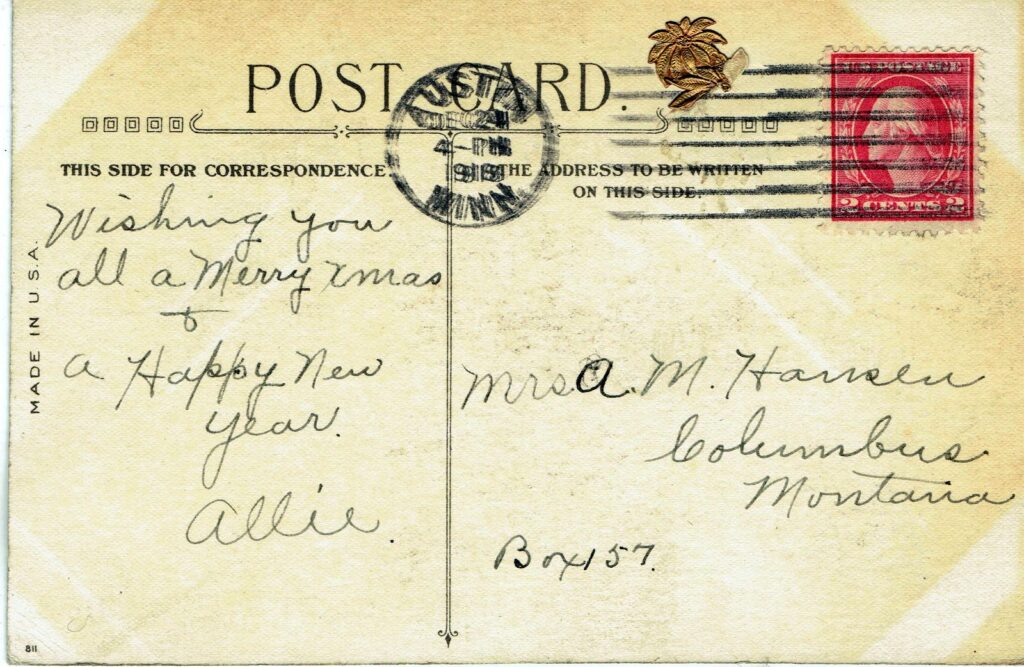 POST CARD.
AUSTIN
DEC 24
4-PM
1918
MINN
U.S. POSTAGE
2 CENTS 2
THIS SIDE FOR CORRESPONDENCE.
THE ADDRESS TO BE WRITTEN
ON THIS SIDE.
MADE IN U.S.A.
Wishing you
all a Merry Xmas
&
a Happy New
Year.
Allie.
Mrs. A. M. Hansen
Columbus
Montana
Box 157.
811